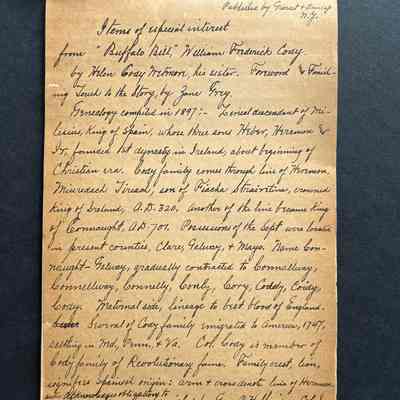 Published by Grosset & Dunlap
N.Y.
Items of especial interest
from "Buffalo Bill," William Frederick Cody.
by Helen Cody Wetmore, his sister. Foreword & Finish-
ing Touch to the Story, by Zane Grey.
Genealogy compiled in 1897:- Lineal descendant of Mi-
lesius, King of Spain, whose three sons Heber, Heremon &
Ir, founded 1st dynasty in Ireland, about beginning of
Christian era. Cody family comes through line of Heremon.
Muiredach Tirean, son of Fiacha Straivetine, crowned
King of Ireland, A.D. 320. Another of the line became king
of Connaught, A.D. 701. Possessions of the Sept were located
in present counties, Clare, Galway, & Mayo. Name Con-
naught-Galway, gradually contracted to Connallway,
Connellway, Connelly, Conly, Cory, Coddy, Coidy,
Cody. Maternal side, lineage to best blood of England.
Several of Cody family emigrated to America, 1747,
settling in Md, Penn, & Va. Col. Cody is member of
Cody family of Revolutionary fame. Family crest, lion,
signifies Spanish origin: arm & cross denote line of Heremon
acknowledges obligation to